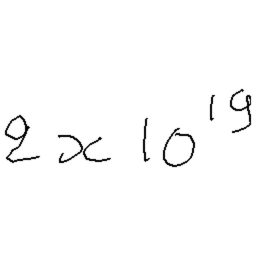 2 x 10^19